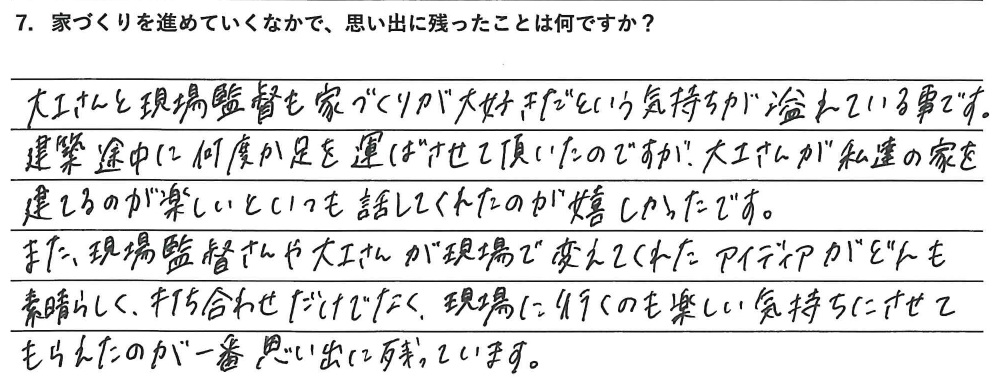 7. 家づくりを進めていくなかで、思い出に残ったことは何ですか？
大工さんと現場監督も家づくりが大好きだという気持ちが溢れている事です。
建築途中に何度か足を運ばさせて頂いたのですが、大工さんが私達の家を
建てるのが楽しいといつも話してくれたのが嬉しかったです。
また、現場監督さんや大工さんが現場で変えてくれたアイディアがどれも
素晴らしく、打ち合わせだけでなく、現場に行くのも楽しい気持ちにさせて
もらえたのが一番思い出に残っています。